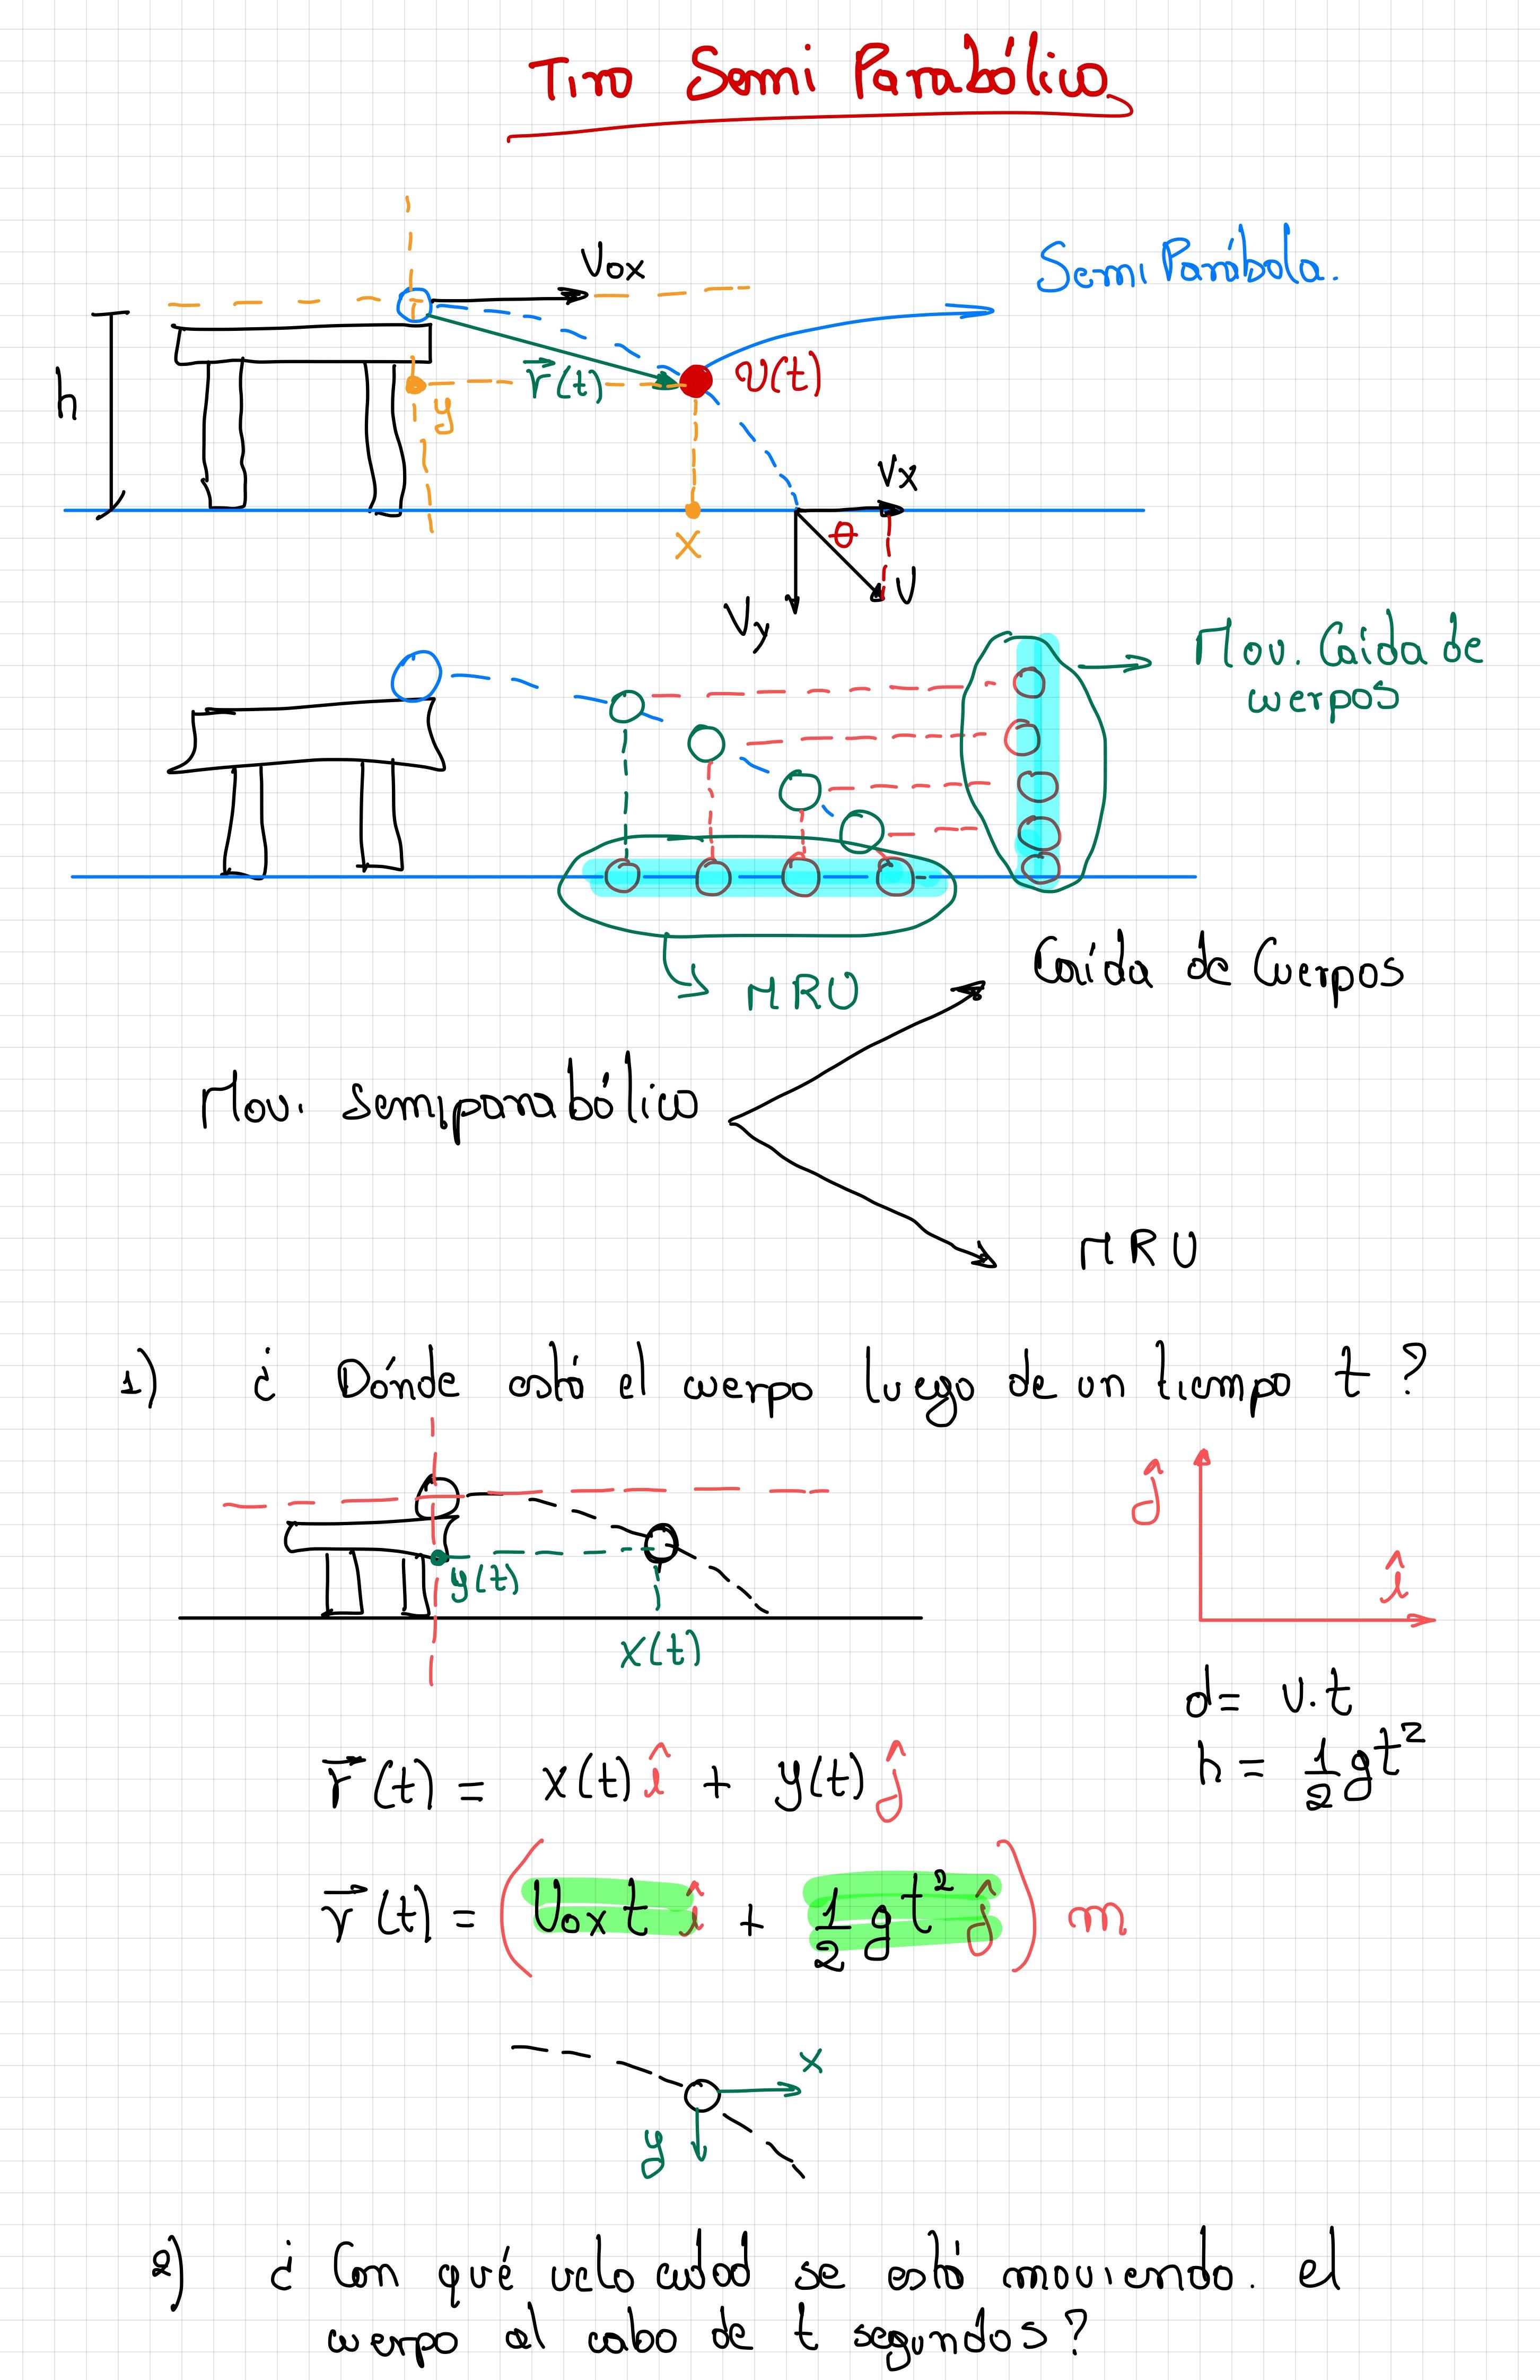 Tiro Semi Parabólico
Vox
Semi Parábola.
h
r(t)
v(t)
y
x
Vx
θ
V
Vy
Mov. Caída de
cuerpos
MRU
Caída de Cuerpos
Mov. semiparabólico
MRU
1) ¿ Dónde está el cuerpo luego de un tiempo t ?
ĵ
î
y(t)
x(t)
d = v.t
h = 1/2 gt²
r⃗ (t) = x(t) î + y(t) ĵ
r⃗ (t) = (Vox t î + 1/2 g t² ĵ) m
x
y
2) ¿ Con qué velocidad se está moviendo. el
cuerpo al cabo de t segundos?